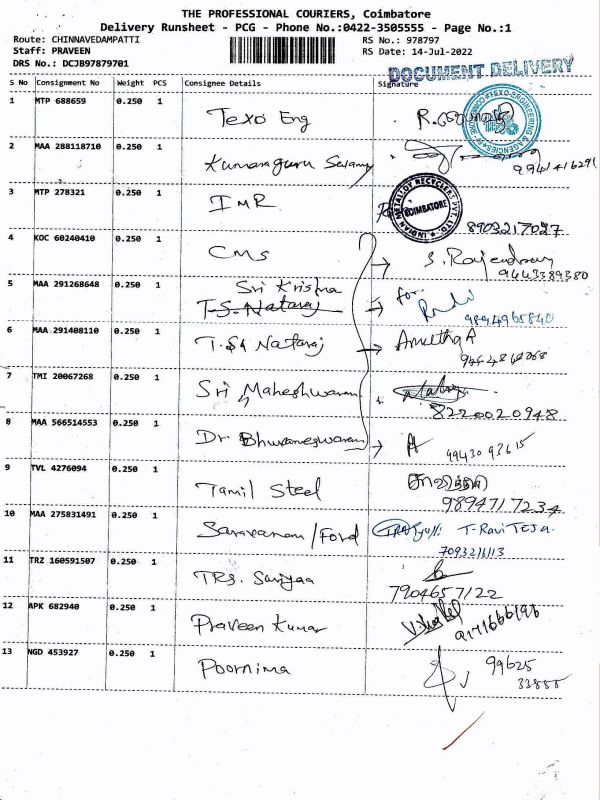 THE PROFESSIONAL COURIERS, Coimbatore
Delivery Runsheet - PCG - Phone No.:0422-3505555 - Page No.:1
Route: CHINNAVEDAMPATTI RS No.: 978797
Staff: PRAVEEN RS Date: 14-Jul-2022
DRS No.: DCJB97879701
DOCUMENT DELIVERY
S No Consignment No Weight PCS Consignee Details Signature
1 MTP 688659 0.250 1 Texo Eng
2 MAA 288118710 0.250 1 Kumaraguru Selamy
9941416291
3 MTP 278321 0.250 1 IMR
INDIAN METALLOY RECYCLERS PVT. LTD. COIMBATORE
8903217027
4 KOC 60240410 0.250 1 CMS S. Rajendran
9443389380
5 MAA 291268648 0.250 1 Sri Krishna for
T.S. Nataraj 9894965840
6 MAA 291408110 0.250 1 T.S. Nataraj Amutha A
7 TMI 20067268 0.250 1 Sri Maheshwaran
8220020948
8 MAA 566514553 0.250 1 Dr Bhuvaneswaran 99430 93615
9 TVL 4276094 0.250 1 Tamil Steel
9894717234
10 MAA 275831491 0.250 1 Saravanan/Ford T-Ravi Teja
11 TRZ 160591507 0.250 1 TRS. Sanjyaa
7904657122
12 APK 682940 0.250 1 Praveen Kumar
13 NGD 453927 0.250 1 Poornima 99625
33855